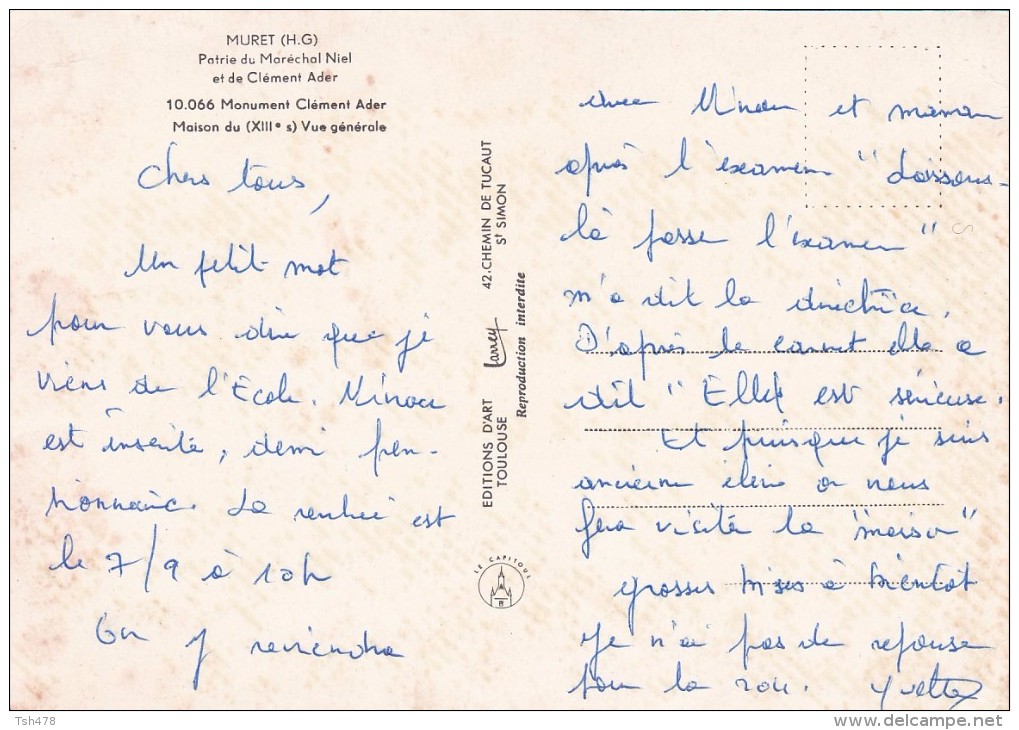 MURET (H.G)
Patrie du Maréchal Niel
et de Clément Ader
10.066 Monument Clément Ader
Maison du (XIIIe s) Vue générale
Chers tous,
Un petit mot
pour vous dire que je
viens de l'École. Minou
est inscrite, demi pen-
sionnaire. La rentrée est
le 7/9 à 10h
On y reviendra
EDITIONS D'ART Larrey 42. CHEMIN DE TUCAUT
TOULOUSE St SIMON
Reproduction interdite
LE CAPITOUL
avec Minou et maman
après l'examen "laissons-
la passer l'examen"
m'a dit la directrice.
D'après le carnet elle a
dit "Elle est sérieuse.
Et puisque je suis
ancienne élève on nous
fera visiter la "maison"
grosses bises à bientôt
Je n'ai pas de réponse
pour la
Yvette
Tsh478
www.delcampe.net